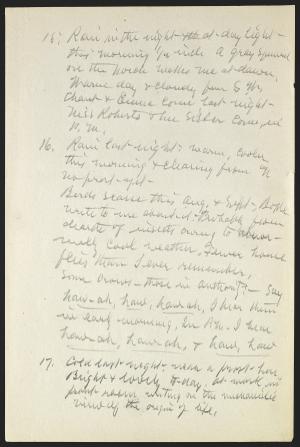 15. Rain in the night - at day light -
this morning ½ inch A gray squirrel
on the porch wakes me at dawn.
Warm day & cloudy from S W,
Chant & Eunice come last night -
Miss Roberts & her sister come, in
P. M.
16. Rain last night - warm, cooler
this morning & clearing from N
no frost yet -
Birds scarce this Aug, & Sept, Both
write to me about it - Probably from
dearth of insects owing to
cool weather, Fewer house
flies than I ever remember,
Some crows - those in authority? - Say
haw-ah, haw, haw-ah, I hear them
in early morning, In P.M. I hear
haw-ah, haw-ah, & haw, haw
17. Cold last night - near a frost - here
Bright & lovely to-day, at work in
front room writing on the mechanistic
view of the origin of life,